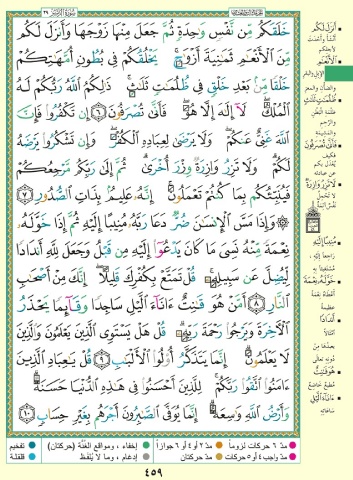 سورة الزمر ٣٩
خَلَقَكُم مِّن نَّفْسٍ وَٰحِدَةٍ ثُمَّ جَعَلَ مِنْهَا زَوْجَهَا وَأَنزَلَ لَكُم
مِّنَ ٱلْأَنْعَٰمِ ثَمَٰنِيَةَ أَزْوَٰجٍ ۚ يَخْلُقُكُمْ فِى بُطُونِ أُمَّهَٰتِكُمْ
خَلْقًا مِّنۢ بَعْدِ خَلْقٍ فِى ظُلُمَٰتٍ ثَلَٰثٍ ۚ ذَٰلِكُمُ ٱللَّهُ رَبُّكُمْ لَهُ
ٱلْمُلْكُ ۖ لَآ إِلَٰهَ إِلَّا هُوَ ۖ فَأَنَّىٰ تُصْرَفُونَ ٦ إِن تَكْفُرُوا۟ فَإِنَّ
ٱللَّهَ غَنِىٌّ عَنكُمْ ۖ وَلَا يَرْضَىٰ لِعِبَادِهِ ٱلْكُفْرَ ۖ وَإِن تَشْكُرُوا۟ يَرْضَهُ
لَكُمْ ۗ وَلَا تَزِرُ وَازِرَةٌ وِزْرَ أُخْرَىٰ ۗ ثُمَّ إِلَىٰ رَبِّكُم مَّرْجِعُكُمْ
فَيُنَبِّئُكُم بِمَا كُنتُمْ تَعْمَلُونَ ۚ إِنَّهُۥ عَلِيمٌۢ بِذَاتِ ٱلصُّدُورِ ٧
۞ وَإِذَا مَسَّ ٱلْإِنسَٰنَ ضُرٌّ دَعَا رَبَّهُۥ مُنِيبًا إِلَيْهِ ثُمَّ إِذَا خَوَّلَهُۥ
نِعْمَةً مِّنْهُ نَسِىَ مَا كَانَ يَدْعُوٓا۟ إِلَيْهِ مِن قَبْلُ وَجَعَلَ لِلَّهِ أَندَادًا
لِّيُضِلَّ عَن سَبِيلِهِۦ ۚ قُلْ تَمَتَّعْ بِكُفْرِكَ قَلِيلًا ۖ إِنَّكَ مِنْ أَصْحَٰبِ
ٱلنَّارِ ٨ أَمَّنْ هُوَ قَٰنِتٌ ءَانَآءَ ٱلَّيْلِ سَاجِدًا وَقَآئِمًا يَحْذَرُ
ٱلْءَاخِرَةَ وَيَرْجُوا۟ رَحْمَةَ رَبِّهِۦ ۗ قُلْ هَلْ يَسْتَوِى ٱلَّذِينَ يَعْلَمُونَ وَٱلَّذِينَ
لَا يَعْلَمُونَ ۗ إِنَّمَا يَتَذَكَّرُ أُو۟لُوا۟ ٱلْأَلْبَٰبِ ٩ قُلْ يَٰعِبَادِ ٱلَّذِينَ
ءَامَنُوا۟ ٱتَّقُوا۟ رَبَّكُمْ ۚ لِلَّذِينَ أَحْسَنُوا۟ فِى هَٰذِهِ ٱلدُّنْيَا حَسَنَةٌ ۗ
وَأَرْضُ ٱللَّهِ وَٰسِعَةٌ ۗ إِنَّمَا يُوَفَّى ٱلصَّٰبِرُونَ أَجْرَهُم بِغَيْرِ حِسَابٍ ١٠
أنزل لكم
أنشأ وأحدث
لأجلكم
الأنعام
الإبل والبقر
والضأن والمعز
ظلمات ثلاث
ظلمة البطن
والرحم
والمشيمة
فأنى تصرفون
فكيف
يُعدَل بكم
عن عبادته
لا تزر وازرة
لا تحمل
نفس آثمة
منيبا إليه
راجعا إليه
مستغيثا به
خوله نعمة
أعطاه نعمة
عظيمة
أندادا
أمثالا
يعبدها من
دونه تعالى
هو قانت
مطيع خاضع
آناء الليل
ساعاته
مدّ ٦ حركات لزوماً
مدّ ٢ أو ٤ أو ٦ جوازاً
إخفاء، ومواقع الغُنَّة (حركتان)
تفخيم
مدّ واجب ٤ أو ٥ حركات
مدّ حركتان
إدغام، وما لا يُلفَظ
قلقلة
٤٥٩